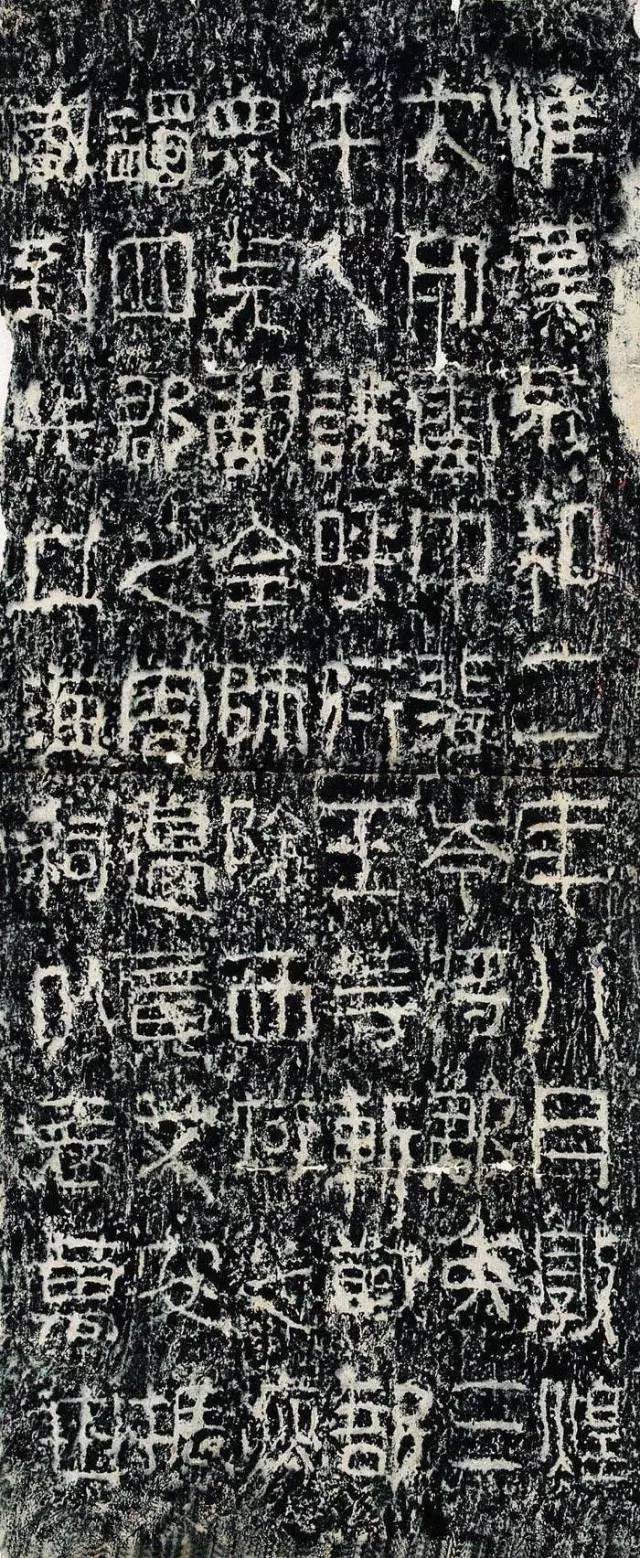 惟漢永和二年八月敦煌
太守雲中裴岑將郡兵三
千人誅呼衍王等斬馘部
眾克敵全師除西域之疢
蠲四郡之害邊竟艾安振
威到此立海祠以表萬世